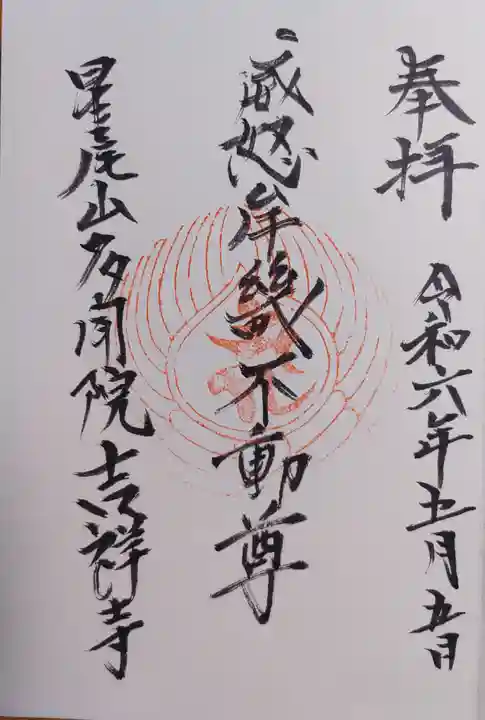 奉拝 令和六年五月五日
厳怒牟畿不動尊
星尾山多聞院吉祥寺